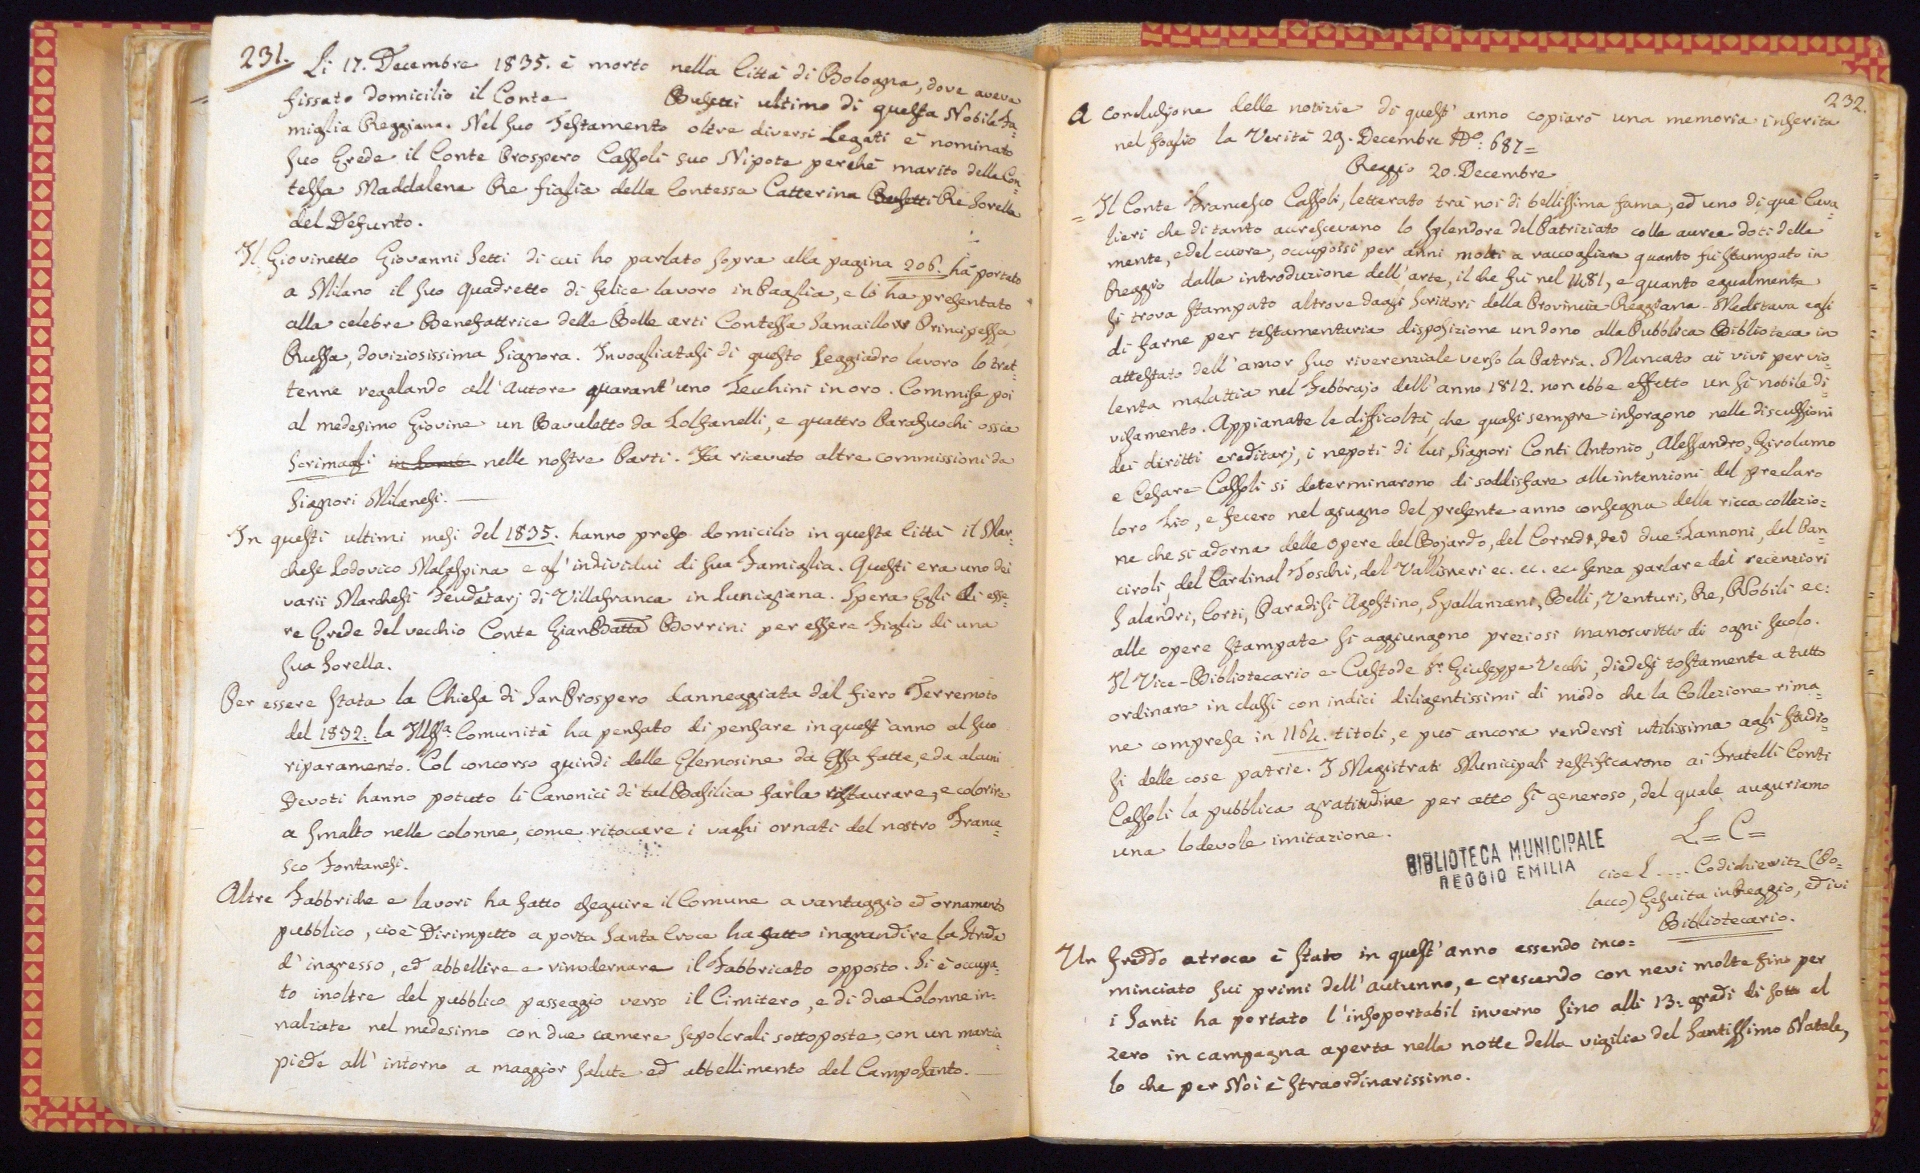 231.
Li 17. Decembre 1835. è morto nella Città di Bologna, dove aveva
fissato domicilio il Conte Busetti ultimo di questa Nobile Fa-
miglia Reggiana. Nel suo Testamento oltre diversi Legati è nominato
suo Erede il Conte Prospero Cassoli suo Nipote perchè marito della Con-
tessa Maddalena Re figlia della Contessa Catterina Busetti Re sorella
del Defunto.
Il Giovinetto Giovanni Setti di cui ho parlato sopra alla pagina 206. ha portato
a Milano il suo quadretto di felice lavoro in Paglia, e lo ha presentato
alla celebre Benefattrice delle Belle arti Contessa Samaillow Principessa
Russa, doviziosissima Signora. Invogliatasi di questo leggiadro lavoro lo trat-
tenne regalando all'Autore quarant'uno Zecchini in oro. Commise poi
al medesimo Giovine un Bauletto da Zolfanelli, e quattro Parafuochi ossia
Scrimagli nelle nostre Parti. Ha ricevuto altre commissioni da
Signori Milanesi.
In questi ultimi mesi del 1835. hanno preso domicilio in questa Città il Mar-
chese Lodovico Malaspina e gl'individui di sua Famiglia. Questi era uno dei
varii Marchesi Feudatarj di Villafranca in Lunigiana. Spera Egli di esse-
re Erede del vecchio Conte GianBatta Borrini per essere Figlio di una
sua Sorella.
Per essere stata la Chiesa di San Prospero danneggiata dal fiero Terremoto
del 1832. la Illssa Comunità ha pensato di pensare in quest'anno al suo
riparamento. Col concorso quindi delle Elemosine da Essa fatte, e da alcuni
Devoti hanno potuto li Canonici di tal Basilica farla ristaurare, e colorire
a smalto nelle colonne, come ritoccare i vaghi ornati del nostro France-
sco Fontanesi.
Altre Fabbriche e lavori ha fatto eseguire il Comune a vantaggio ed ornamento
pubblico, cioè Dirimpetto a porta Santa Croce ha fatto ingrandire la Strada
d'ingresso, ed abbellire e rimodernare il Fabbricato opposto. Si è occupa-
to inoltre del pubblico passeggio verso il Cimitero, e di due Colonne in-
nalzate nel medesimo con due camere sepolcrali sottoposte, con un marcia-
piede all'intorno a maggior salute ed abbellimento del Camposanto.
232.
A conclusione delle notizie di quest'anno copiarò una memoria inserita
nel foglio la Verità 29. Decembre No: 687=
Reggio 20. Decembre
= Il Conte Francesco Cassoli, letterato trà noi di bellissima fama, ed uno di que' Cava-
lieri che di tanto accrescevano lo splendore del Patriziato colle auree doti della
mente, e del cuore, occupossi per anni molti a raccogliere quanto fu stampato in
Reggio dalla introduzione dell'arte, il che fu nel 1481, e quanto egualmente
si trova stampato altrove dagli Scrittori della Provincia Reggiana. Meditava egli
di farne per testamentaria disposizione un dono alla Pubblica Biblioteca in
attestato dell'amor suo riverenziale verso la Patria. Mancato ai vivi per vio-
lenta malattia nel Febbrajo dell'anno 1812. non ebbe effetto un sì nobile di-
visamento. Appianate le difficoltà, che quasi sempre insorgono nelle discussioni
dei diritti ereditarj, i nepoti di lui, Signori Conti Antonio, Alessandro, Girolamo
e Cesare Cassoli si determinarono di soddisfare alle intenzioni del preclaro
loro Zio, e fecero nel giugno del presente anno consegna della ricca collezio-
ne che si adorna delle Opere del Bojardo, del Corradi, dei due Zannoni, del Pan-
ciroli, del Cardinal Toschi, del Vallisneri ec. ec. ec senza parlare dei recenziori
Salandri, Corti, Paradisi Agostino, Spallanzani, Belli, Venturi, Re, Nobili ec:
alle opere stampate si aggiungono preziosi manoscritti di ogni secolo.
Il Vice-Bibliotecario e Custode Sr Giuseppe Vecchi, diedesi tostamente a tutto
ordinare in classi con indici diligentissimi di modo che la Collezione rima-
ne compresa in 1164. titoli, e può ancora rendersi utilissima agli studio-
si delle cose patrie. I Magistrati Municipali testificarono ai Fratelli Conti
Cassoli la pubblica gratitudine per atto sì generoso, del quale auguriamo
una lodevole imitazione.
L= C=
BIBLIOTECA MUNICIPALE
REGGIO EMILIA
cioè L .... Codichiewitz (Po-
lacco) Gesuita in Reggio, ed ivi
Bibliotecario.
Un freddo atroce è stato in quest'anno essendo inco=
minciato sui primi dell'autunno, e crescendo con nevi molte fino per
i Santi ha portato l'insoportabil inverno fino alli 13: gradi di sotto al
zero in campagna aperta nella notte della vigilia del Santissimo Natale,
lo che per Noi è straordinarissimo.